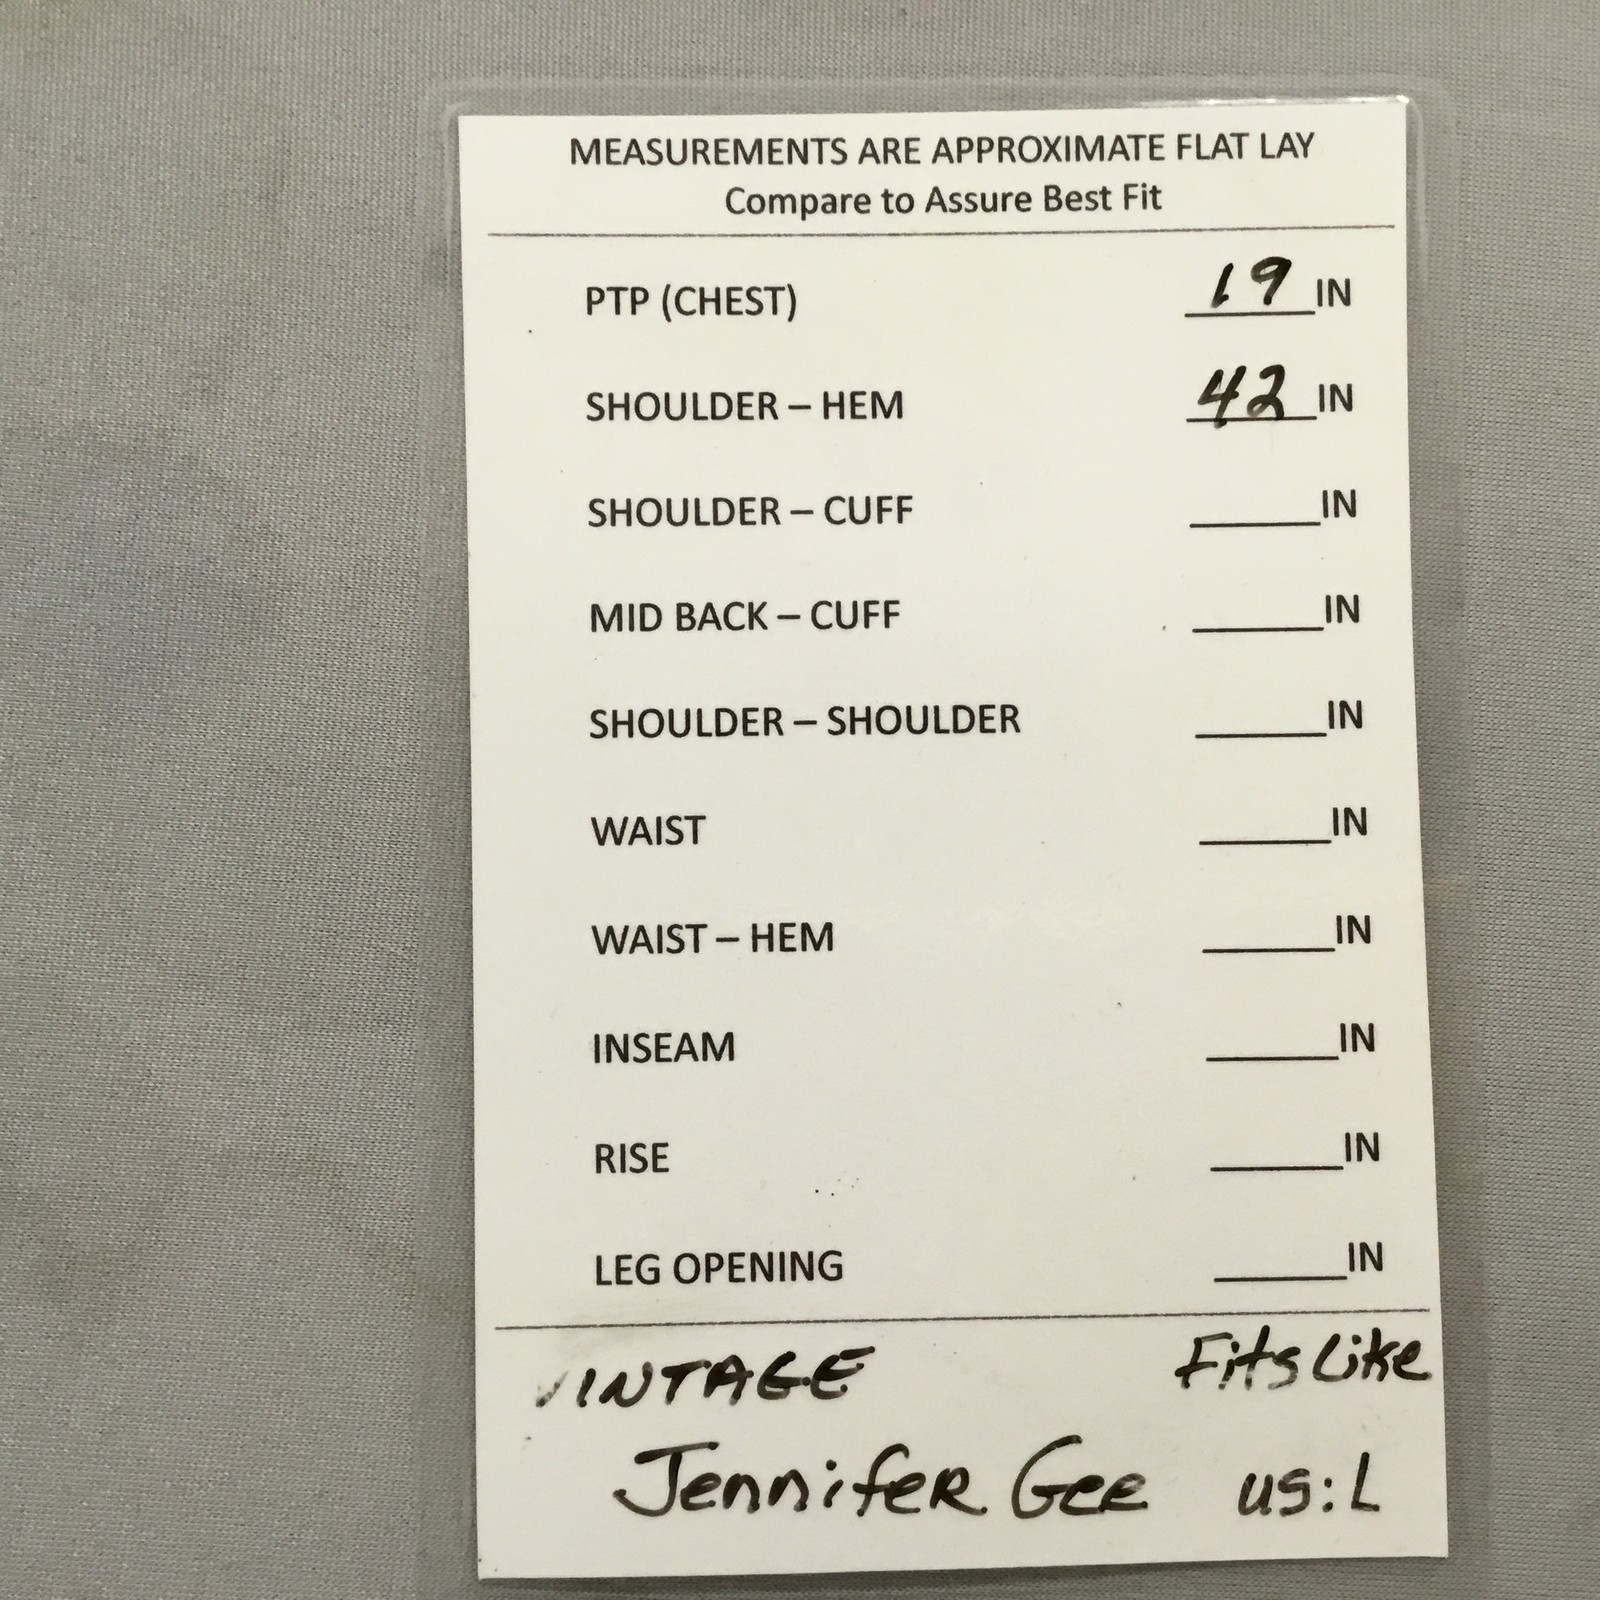 MEASUREMENTS ARE APPROXIMATE FLAT LAY
Compare to Assure Best Fit
PTP (CHEST) 19 IN
SHOULDER – HEM 42 IN
SHOULDER – CUFF ______IN
MID BACK – CUFF ______IN
SHOULDER – SHOULDER ______IN
WAIST ______IN
WAIST – HEM ______IN
INSEAM ______IN
RISE ______IN
LEG OPENING ______IN
VINTAGE Fits Like
JenniFeR Gee US: L